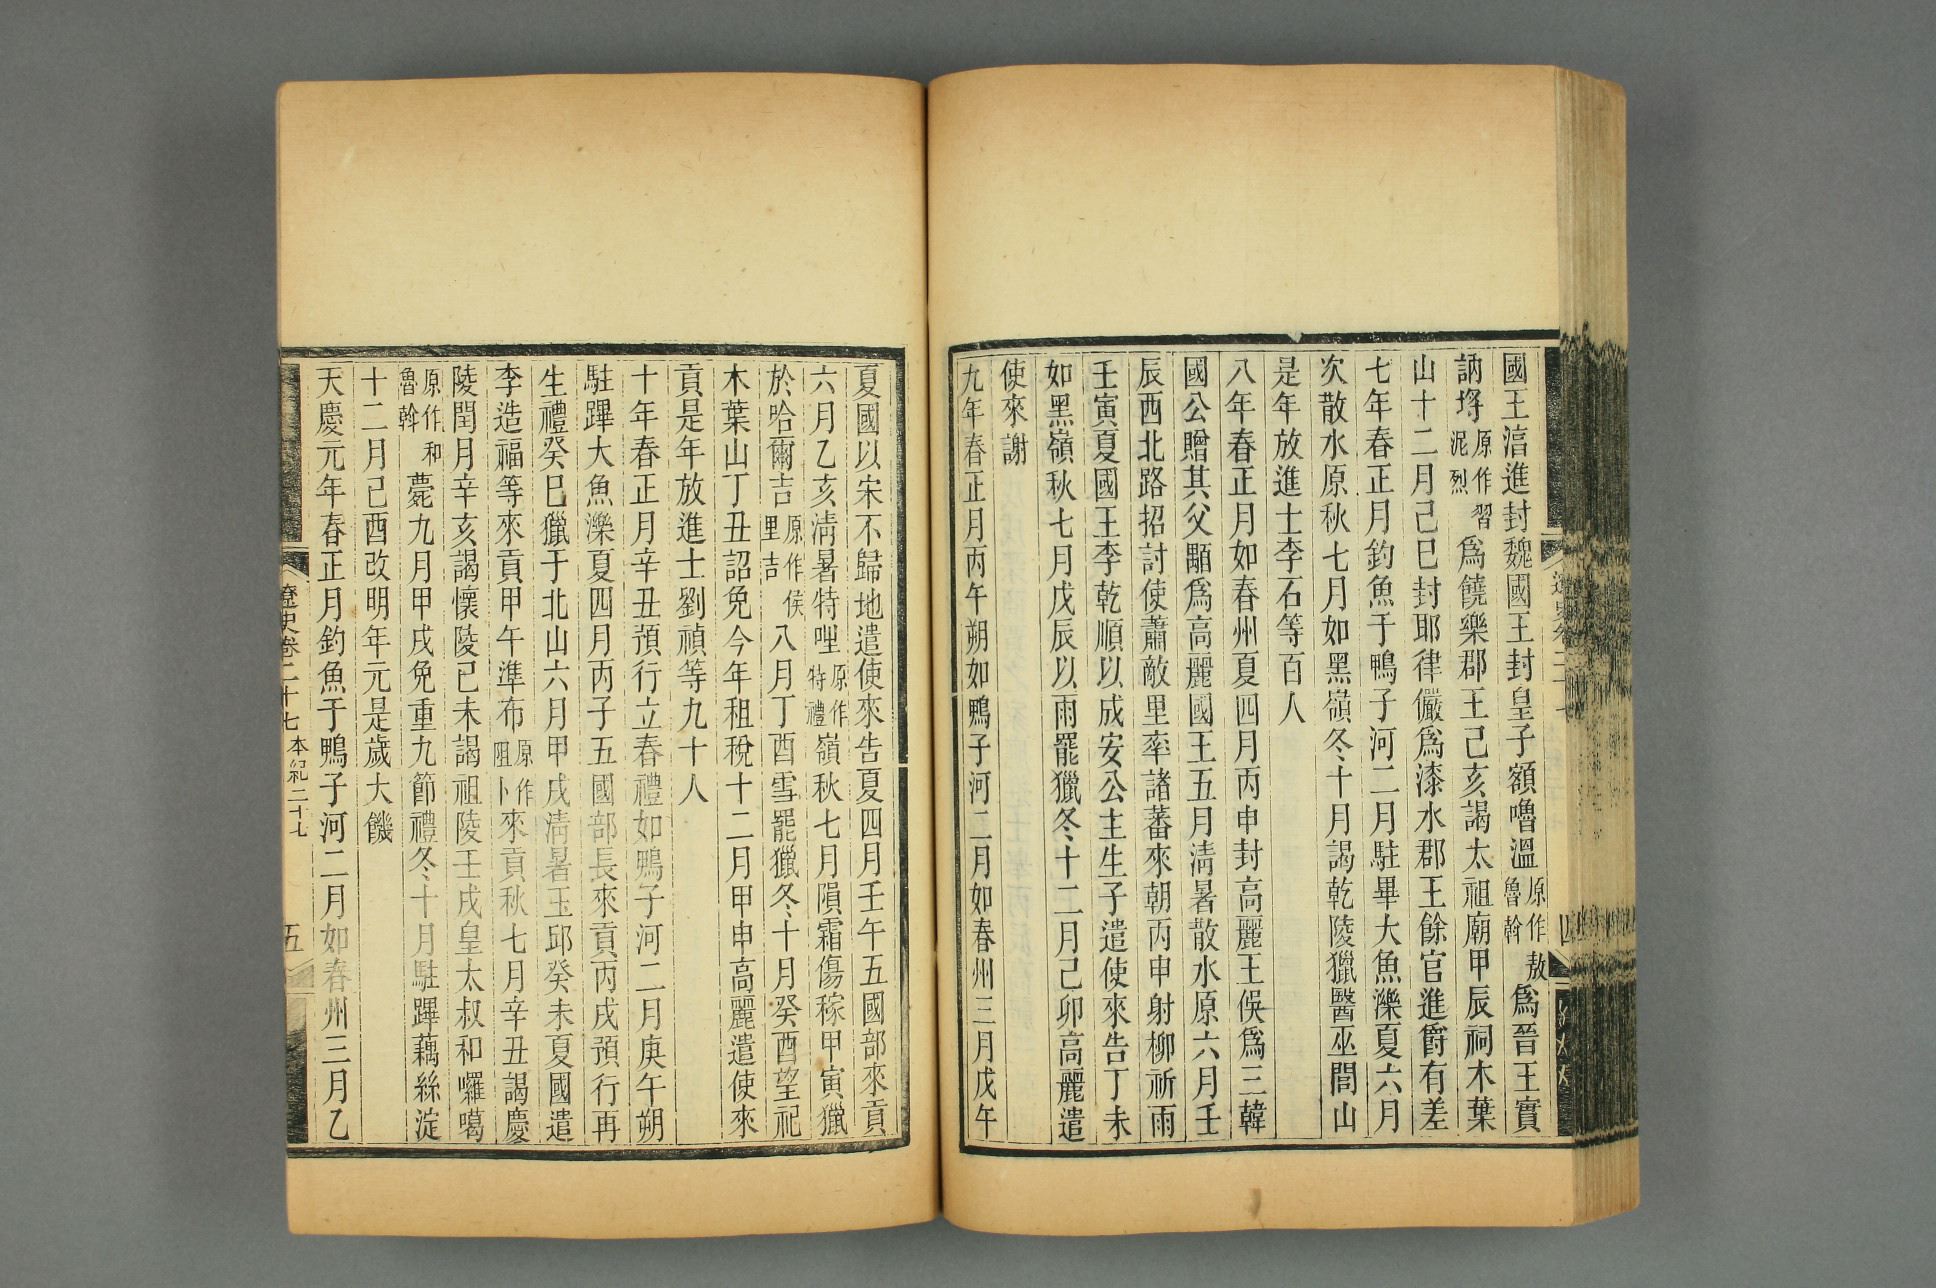 國王淳進封魏國王封皇子額嚕溫原作敖魯斡爲晉王實
訥埒原作習泥烈爲饒樂郡王己亥謁太祖廟甲辰祠木葉
山十二月己巳封耶律儼爲漆水郡王餘官進爵有差
七年春正月釣魚于鴨子河二月駐畢大魚濼夏六月
次散水原秋七月如黑嶺冬十月謁乾陵獵醫巫閭山
是年放進士李石等百人
八年春正月如春州夏四月丙申封高麗王俁爲三韓
國公贈其父顒爲高麗國王五月清暑散水原六月壬
辰西北路招討使蕭敵里率諸蕃來朝丙申射柳祈雨
壬寅夏國王李乾順以成安公主生子遣使來告丁未
如黑嶺秋七月戊辰以雨罷獵冬十二月己卯高麗遣
使來謝
九年春正月丙午朔如鴨子河二月如春州三月戊午
夏國以宋不歸地遣使來告夏四月壬午五國部來貢
六月乙亥清暑特哩原作特禮嶺秋七月隕霜傷稼甲寅獵
於哈爾吉原作侯里吉八月丁酉雪罷獵冬十月癸酉望祀
木葉山丁丑詔免今年租稅十二月甲申高麗遣使來
貢是年放進士劉禎等九十人
十年春正月辛丑預行立春禮如鴨子河二月庚午朔
駐蹕大魚濼夏四月丙子五國部長來貢丙戌預行再
生禮癸巳獵于北山六月甲戌清暑玉邱癸未夏國遣
李造福等來貢甲午準布原作阻卜來貢秋七月辛丑謁慶
陵閏月辛亥謁懷陵己未謁祖陵壬戌皇太叔和囉噶
原作和魯斡薨九月甲戌免重九節禮冬十月駐蹕藕絲淀
十二月己酉改明年元是歲大饑
天慶元年春正月釣魚于鴨子河二月如春州三月乙
遼史卷二十七 本紀二十七 五